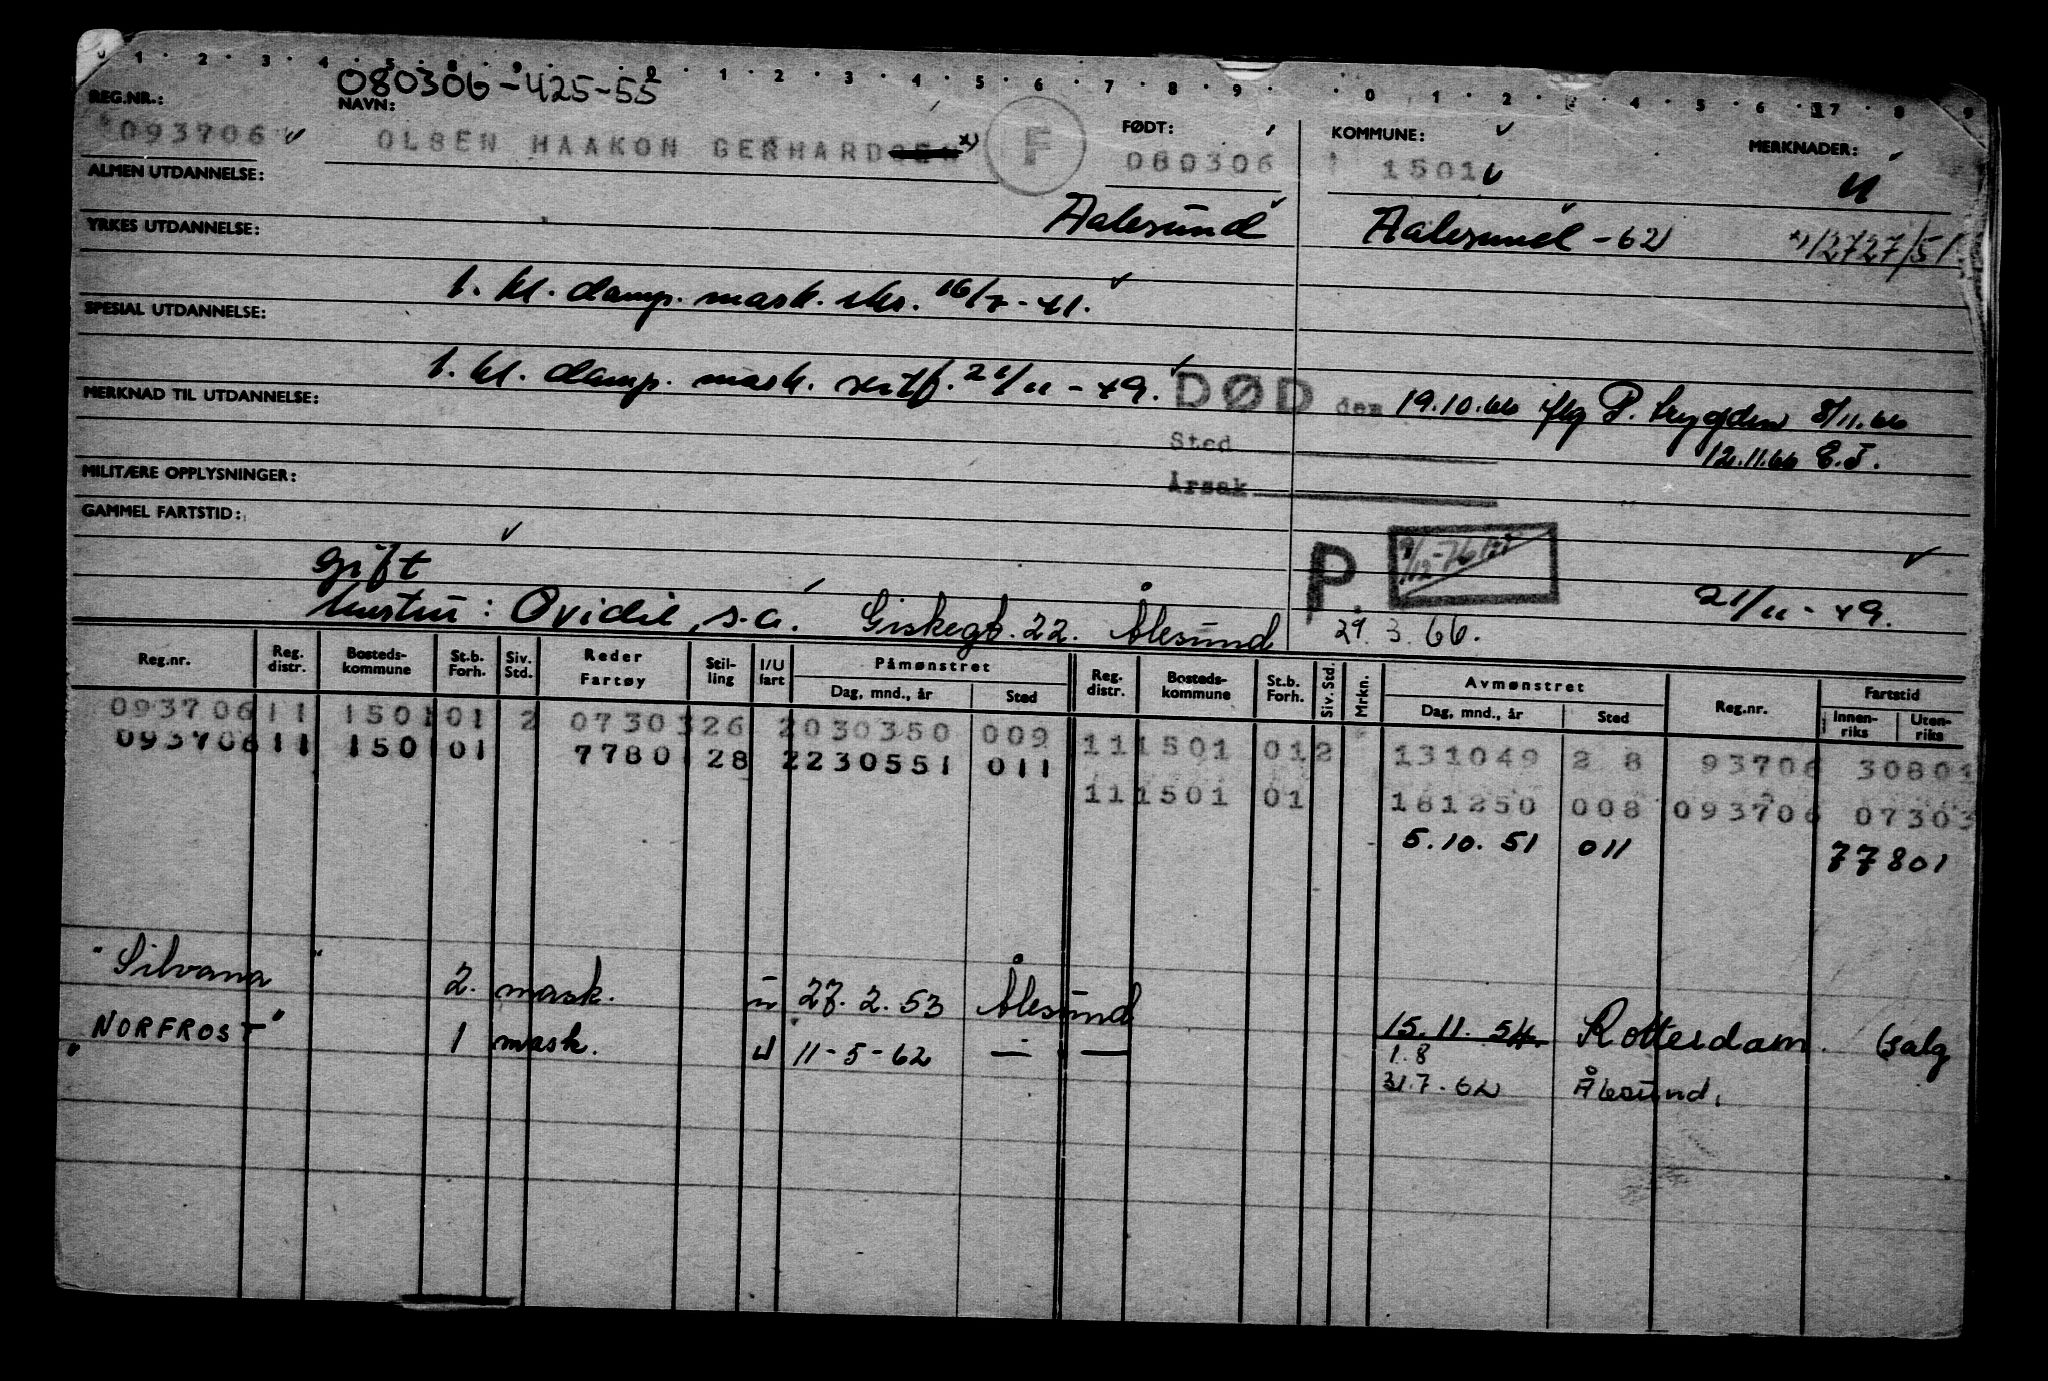 080306-425-55
REG.NR.: NAVN: FØDT: KOMMUNE: MERKNADER:
093706 OLSEN HAAKON GERHARD x) F 080306 1501 U
ALMEN UTDANNELSE:
Aalesund Aalesund -62 x) 2727/51
YRKES UTDANNELSE:
1. kl. damp. mask. 16/7-41.
SPESIAL UTDANNELSE:
1. kl. damp. mask. sertf. 21/11-49.
DØD den 19.10.66 iflg P. trygden 8/11.66
MERKNAD TIL UTDANNELSE:
Sted 12.11.66 E.J.
Årsak
MILITÆRE OPPLYSNINGER:
GAMMEL FARTSTID:
P
gift 21/11-49.
hustru: Ovidie, s.a. Giskegt. 22. Ålesund 29.3.66.
Reg.nr. Reg. distr. Bosteds-kommune St.b. Forh. Siv. Std. Reder Fartøy Stil-ling I/U fart Påmønstret Dag, mnd., år Sted Reg. distr. Bosteds-kommune St.b. Forh. Siv. Std. Mrkn. Avmønstret Dag, mnd., år Sted Reg.nr. Fartstid Innen-riks Uten-riks
093706 11 1501 01 2 07303 26 2 030350 009 11 1501 01 2 131049 2 8 93706 30801
093706 11 1501 01 7780 28 2 230551 011 11 1501 01 181250 008 093706 07303
5.10.51 011 77801
"Silvana" 2. mask. u 27.2.53 Ålesund 15.11.54. Rotterdam. (salg
"NORFROST" 1 mask. U 11-5-62 — — 1.8
31.7.62 Ålesund.